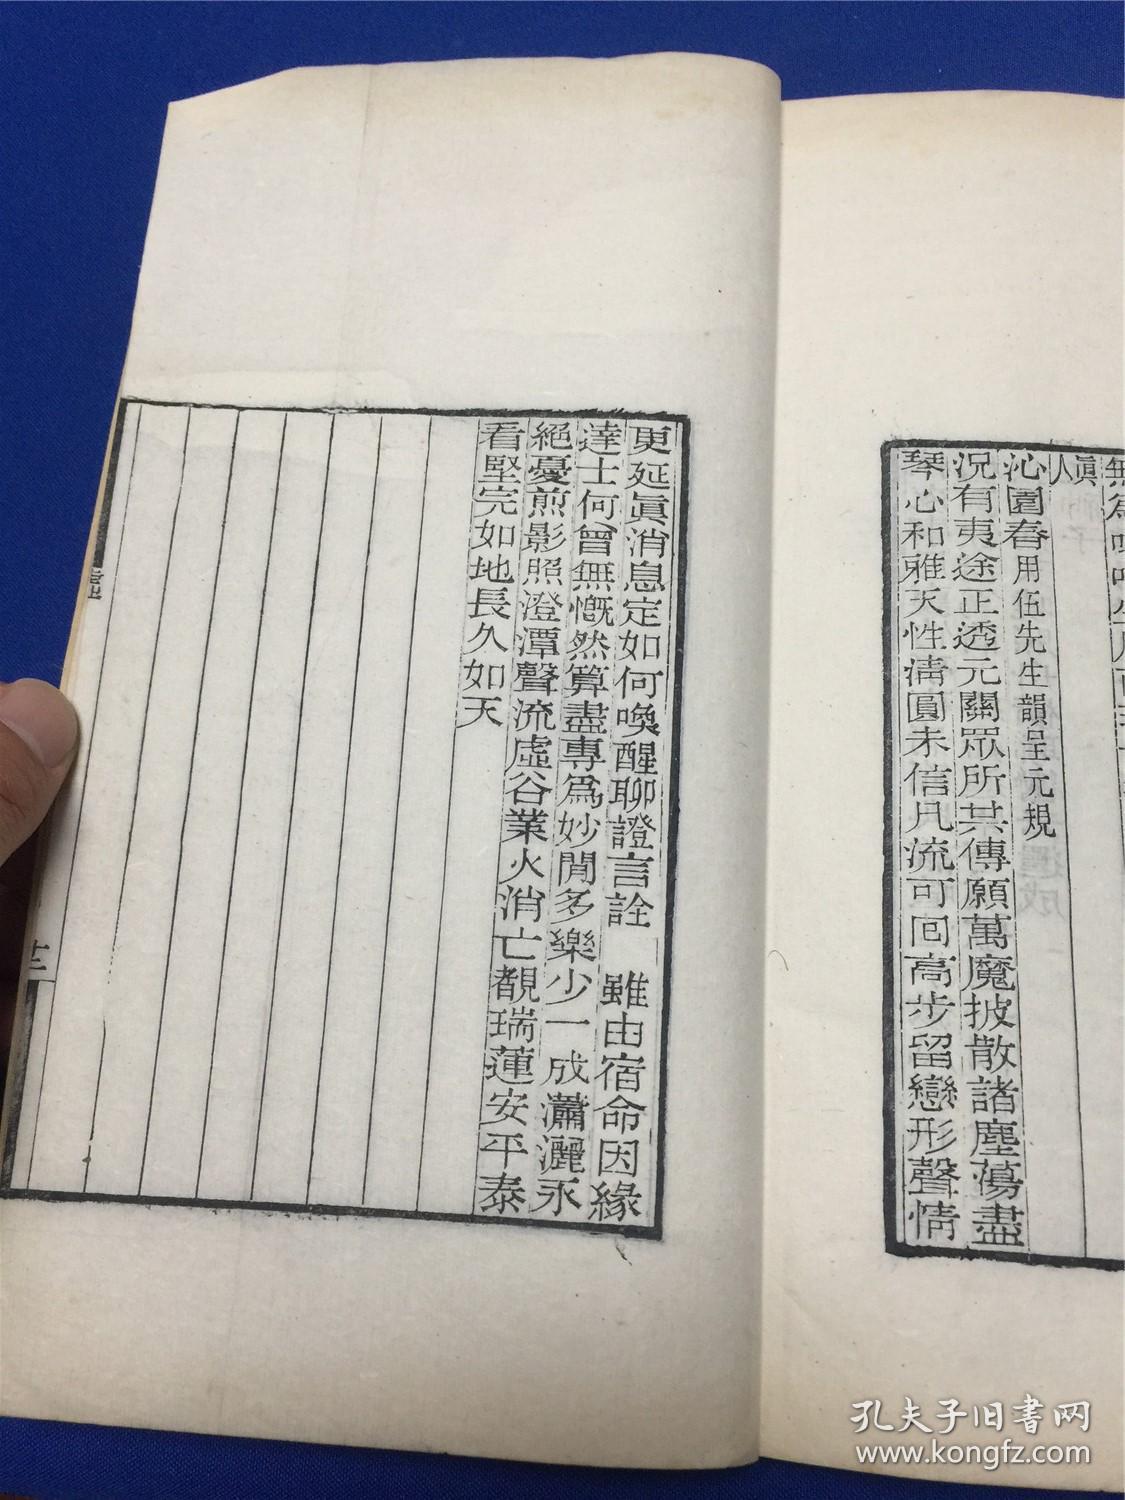 沁園春用伍先生韻呈元規
況有夷途正透元關眾所共傳願萬魔披散諸塵蕩盡
琴心和雅天性清圓未信凡流可回高步留戀形聲情
更延眞消息定如何喚醒聊證言詮　雖由宿命因緣
達士何曾無慨然算盡專爲妙閒多樂少一成瀟灑永
絕憂煎影照澄潭聲流虛谷業火消亡覩瑞蓮安平泰
看堅完如地長久如天
孔夫子旧书网
www.kongfz.com